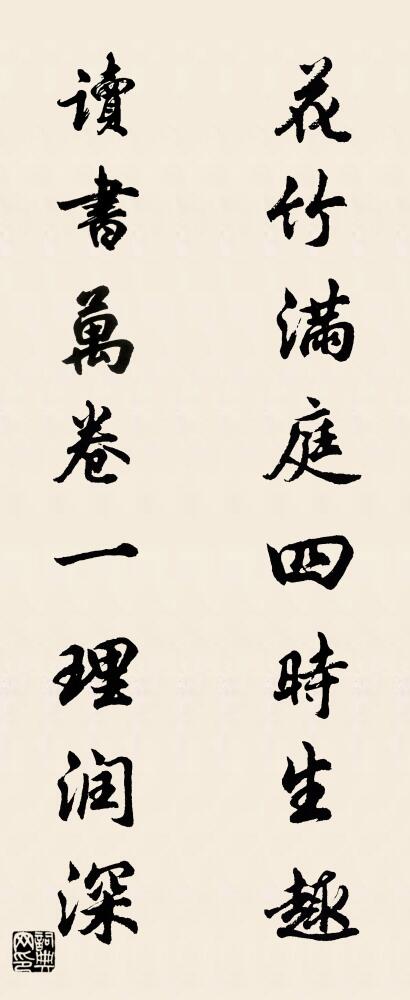 花竹滿庭四時生趣
讀書萬卷一理潤深
詞典網印